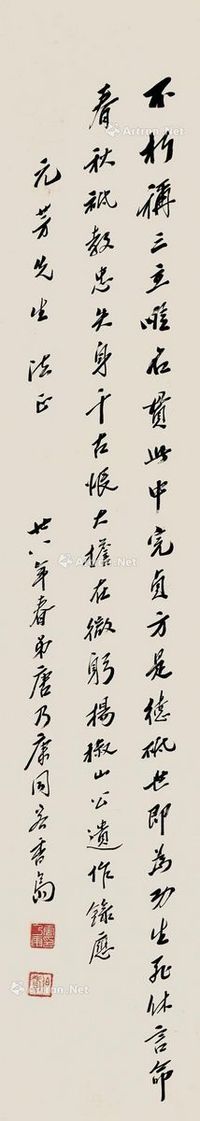 不朽稱三立雖名貫此中完貞方是德砥世即為功生死休言命
春秋祗教忠失身千古恨大擔在微躬楊椒山公遺作錄應
元芳先生 法正
廿八年春弟唐乃康同客香島